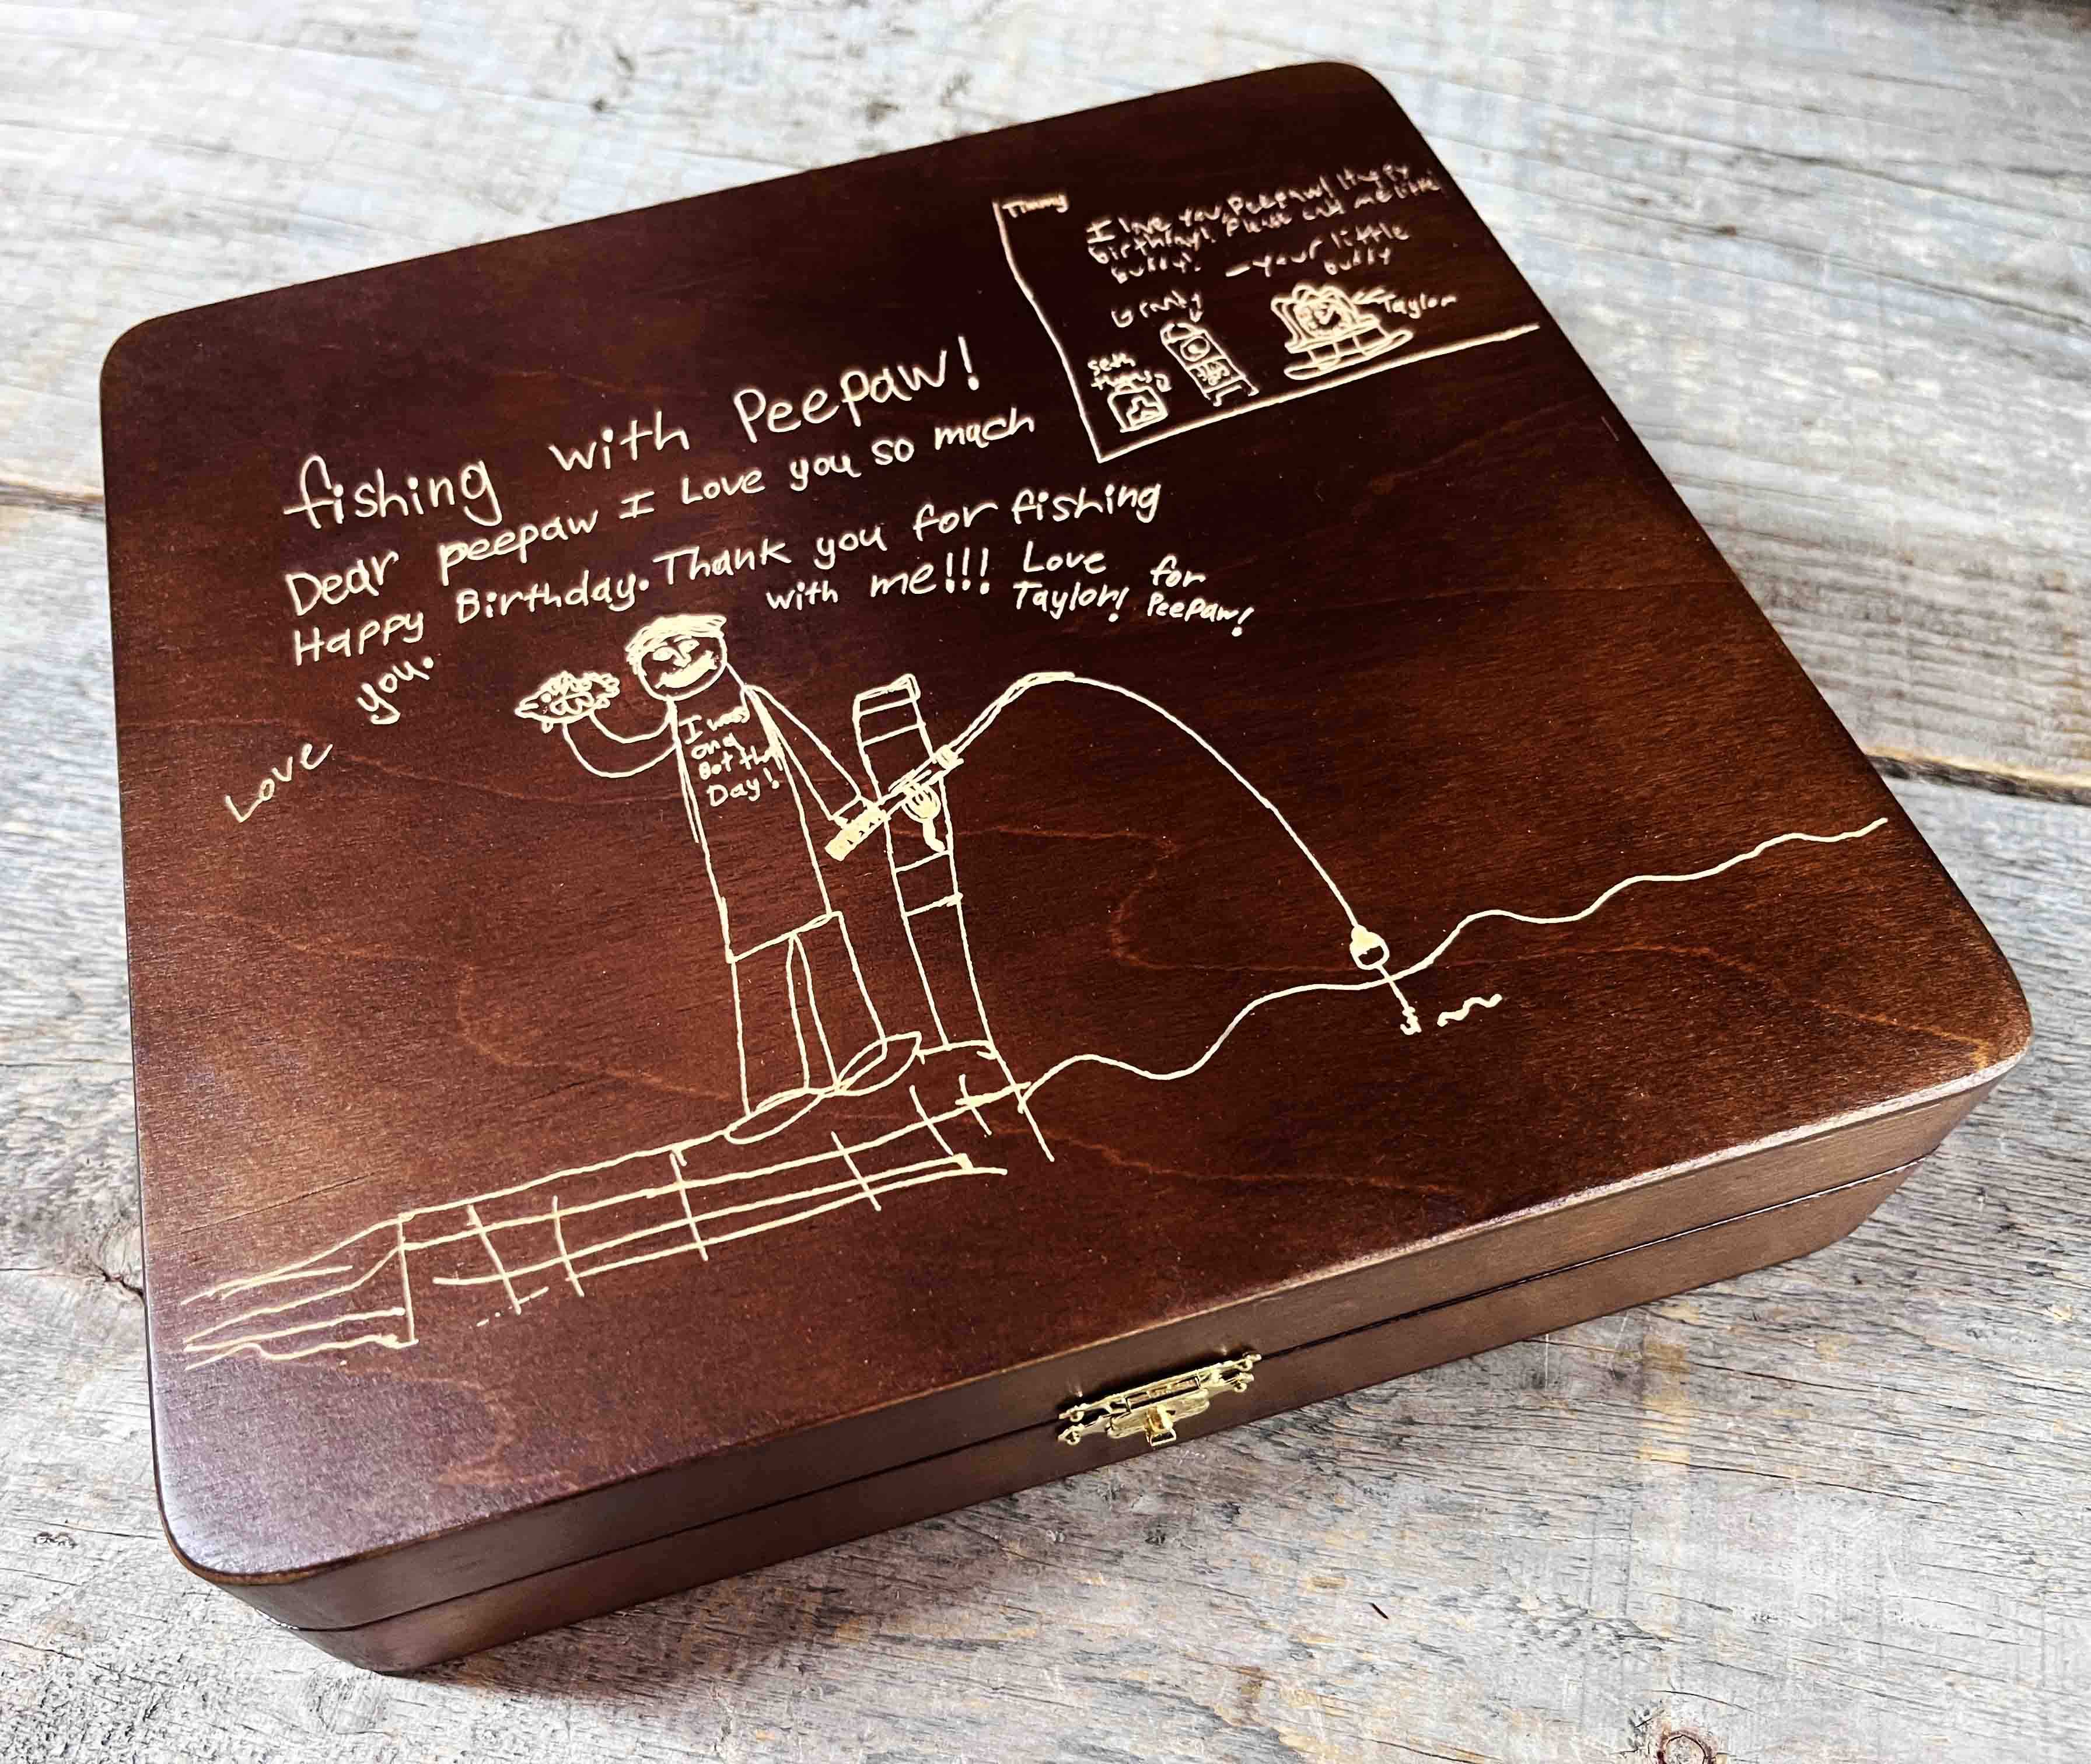 Timmy
I love you, Peepaw! It's my
birthday! Please call me little
buddy!
-your little
buddy
Taylor
fishing with Peepaw!
Dear peepaw I Love you so mach
Happy Birthday. Thank you for fishing
with me!!! Love for
Taylor! Peepaw!
Love you.
I was
on a
Bot that
Day!